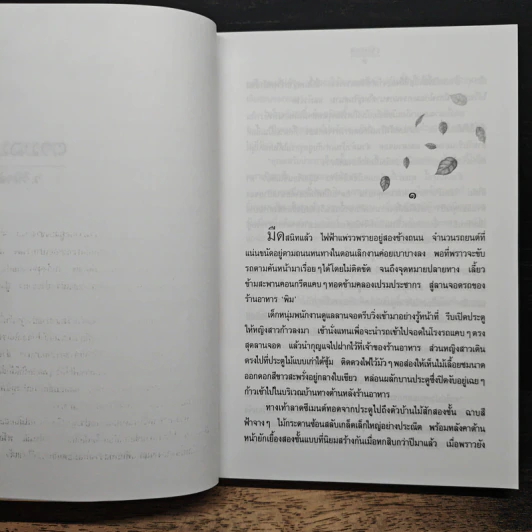 ๑
มืดสนิทแล้ว ไฟฟ้าแพรวพรายอยู่สองข้างถนน จำนวนรถยนต์ที่
แน่นขนัดอยู่ตามถนนหนทางในตอนเลิกงานค่อยเบาบางลง พอที่พราวจะขับ
รถตามคันหน้ามาเรื่อยๆได้โดยไม่ติดขัด จนถึงจุดหมายปลายทาง เลี้ยว
ข้ามสะพานคอนกรีตแคบๆทอดข้ามคลองเปรมประชากร สู่ลานจอดรถของ
ร้านอาหาร 'พิม'
เด็กหนุ่มพนักงานดูแลลานจอดรีบวิ่งเข้ามาอย่างรู้หน้าที่ รีบเปิดประตู
ให้หญิงสาวก้าวลงมา เข้านั่งแทนเพื่อจะนำรถเข้าไปจอดในโรงรถแคบๆตรง
สุดลานจอด แล้วนำกุญแจไปฝากไว้ที่เจ้าของร้านอาหาร ส่วนหญิงสาวเดิน
ตรงไปที่ประตูไม้แบบเก่าใต้ซุ้ม ติดดวงไฟไว้มัวๆพอส่องให้เห็นไม้เลื้อยชมนาด
ออกดอกสีขาวสะพรั่งอยู่กลางใบเขียว หล่อนผลักบานประตูซึ่งปิดงับอยู่เฉยๆ
ก้าวเข้าไปในบริเวณบ้านทางด้านหลังร้านอาหาร
ทางเท้าลาดซีเมนต์ทอดจากประตูไปถึงตัวบ้านไม้สักสองชั้น ฉาบสี
ฟ้าจางๆ ไม้กระดานซ้อนสลับเกล็ดเล็กใหญ่อย่างประณีต พร้อมหลังคาด้าน
หน้ายักเยื้องสองชั้นแบบที่นิยมสร้างกันเมื่อหกสิบกว่าปีมาแล้ว เมื่อพราวยัง